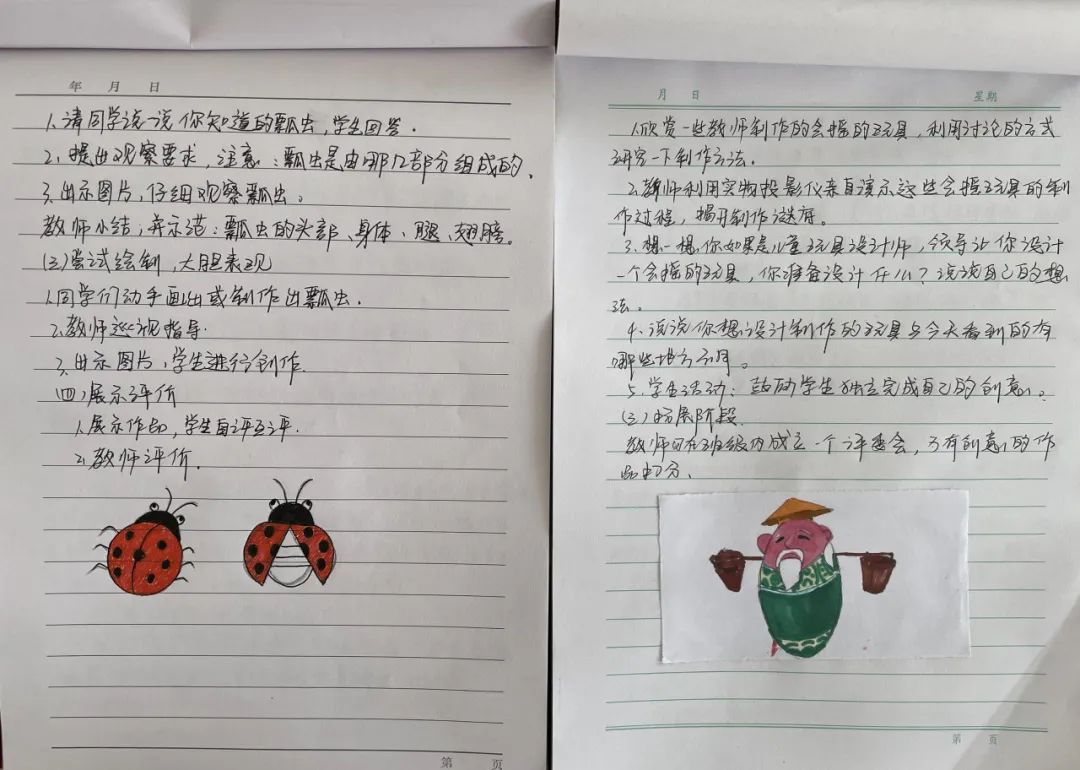 年 月 日
1.请同学说一说你知道的瓢虫,学生回答.
2.提出观察要求,注意:瓢虫是由哪几部分组成的.
3.出示图片,仔细观察瓢虫。
教师小结,并示范:瓢虫的头部、身体、腿、翅膀。
(三)尝试绘制,大胆表现
1.同学们动手画出或制作出瓢虫.
2.教师巡视指导.
3.出示图片,学生进行创作.
(四)展示评价
1.展示作品,学生自评互评.
2.教师评价.
第 页
月 日 星期
1.欣赏一些教师制作的会摇的玩具,利用讨论的方式
研究一下制作方法.
2.教师利用实物投影仪亲自演示这些会摇玩具的制
作过程,揭开制作谜底.
3.想一想,你如果是儿童玩具设计师,领导让你设计
一个会摇的玩具,你准备设计什么?说说自己的想
法。
4.说说你想设计制作的玩具与今天看到的有
哪些地方不同。
5.学生活动:鼓励学生独立完成自己的创意。
(三)拓展阶段
教师可在班级内成立一个评委会,为有创意的作
品打分、
第 页